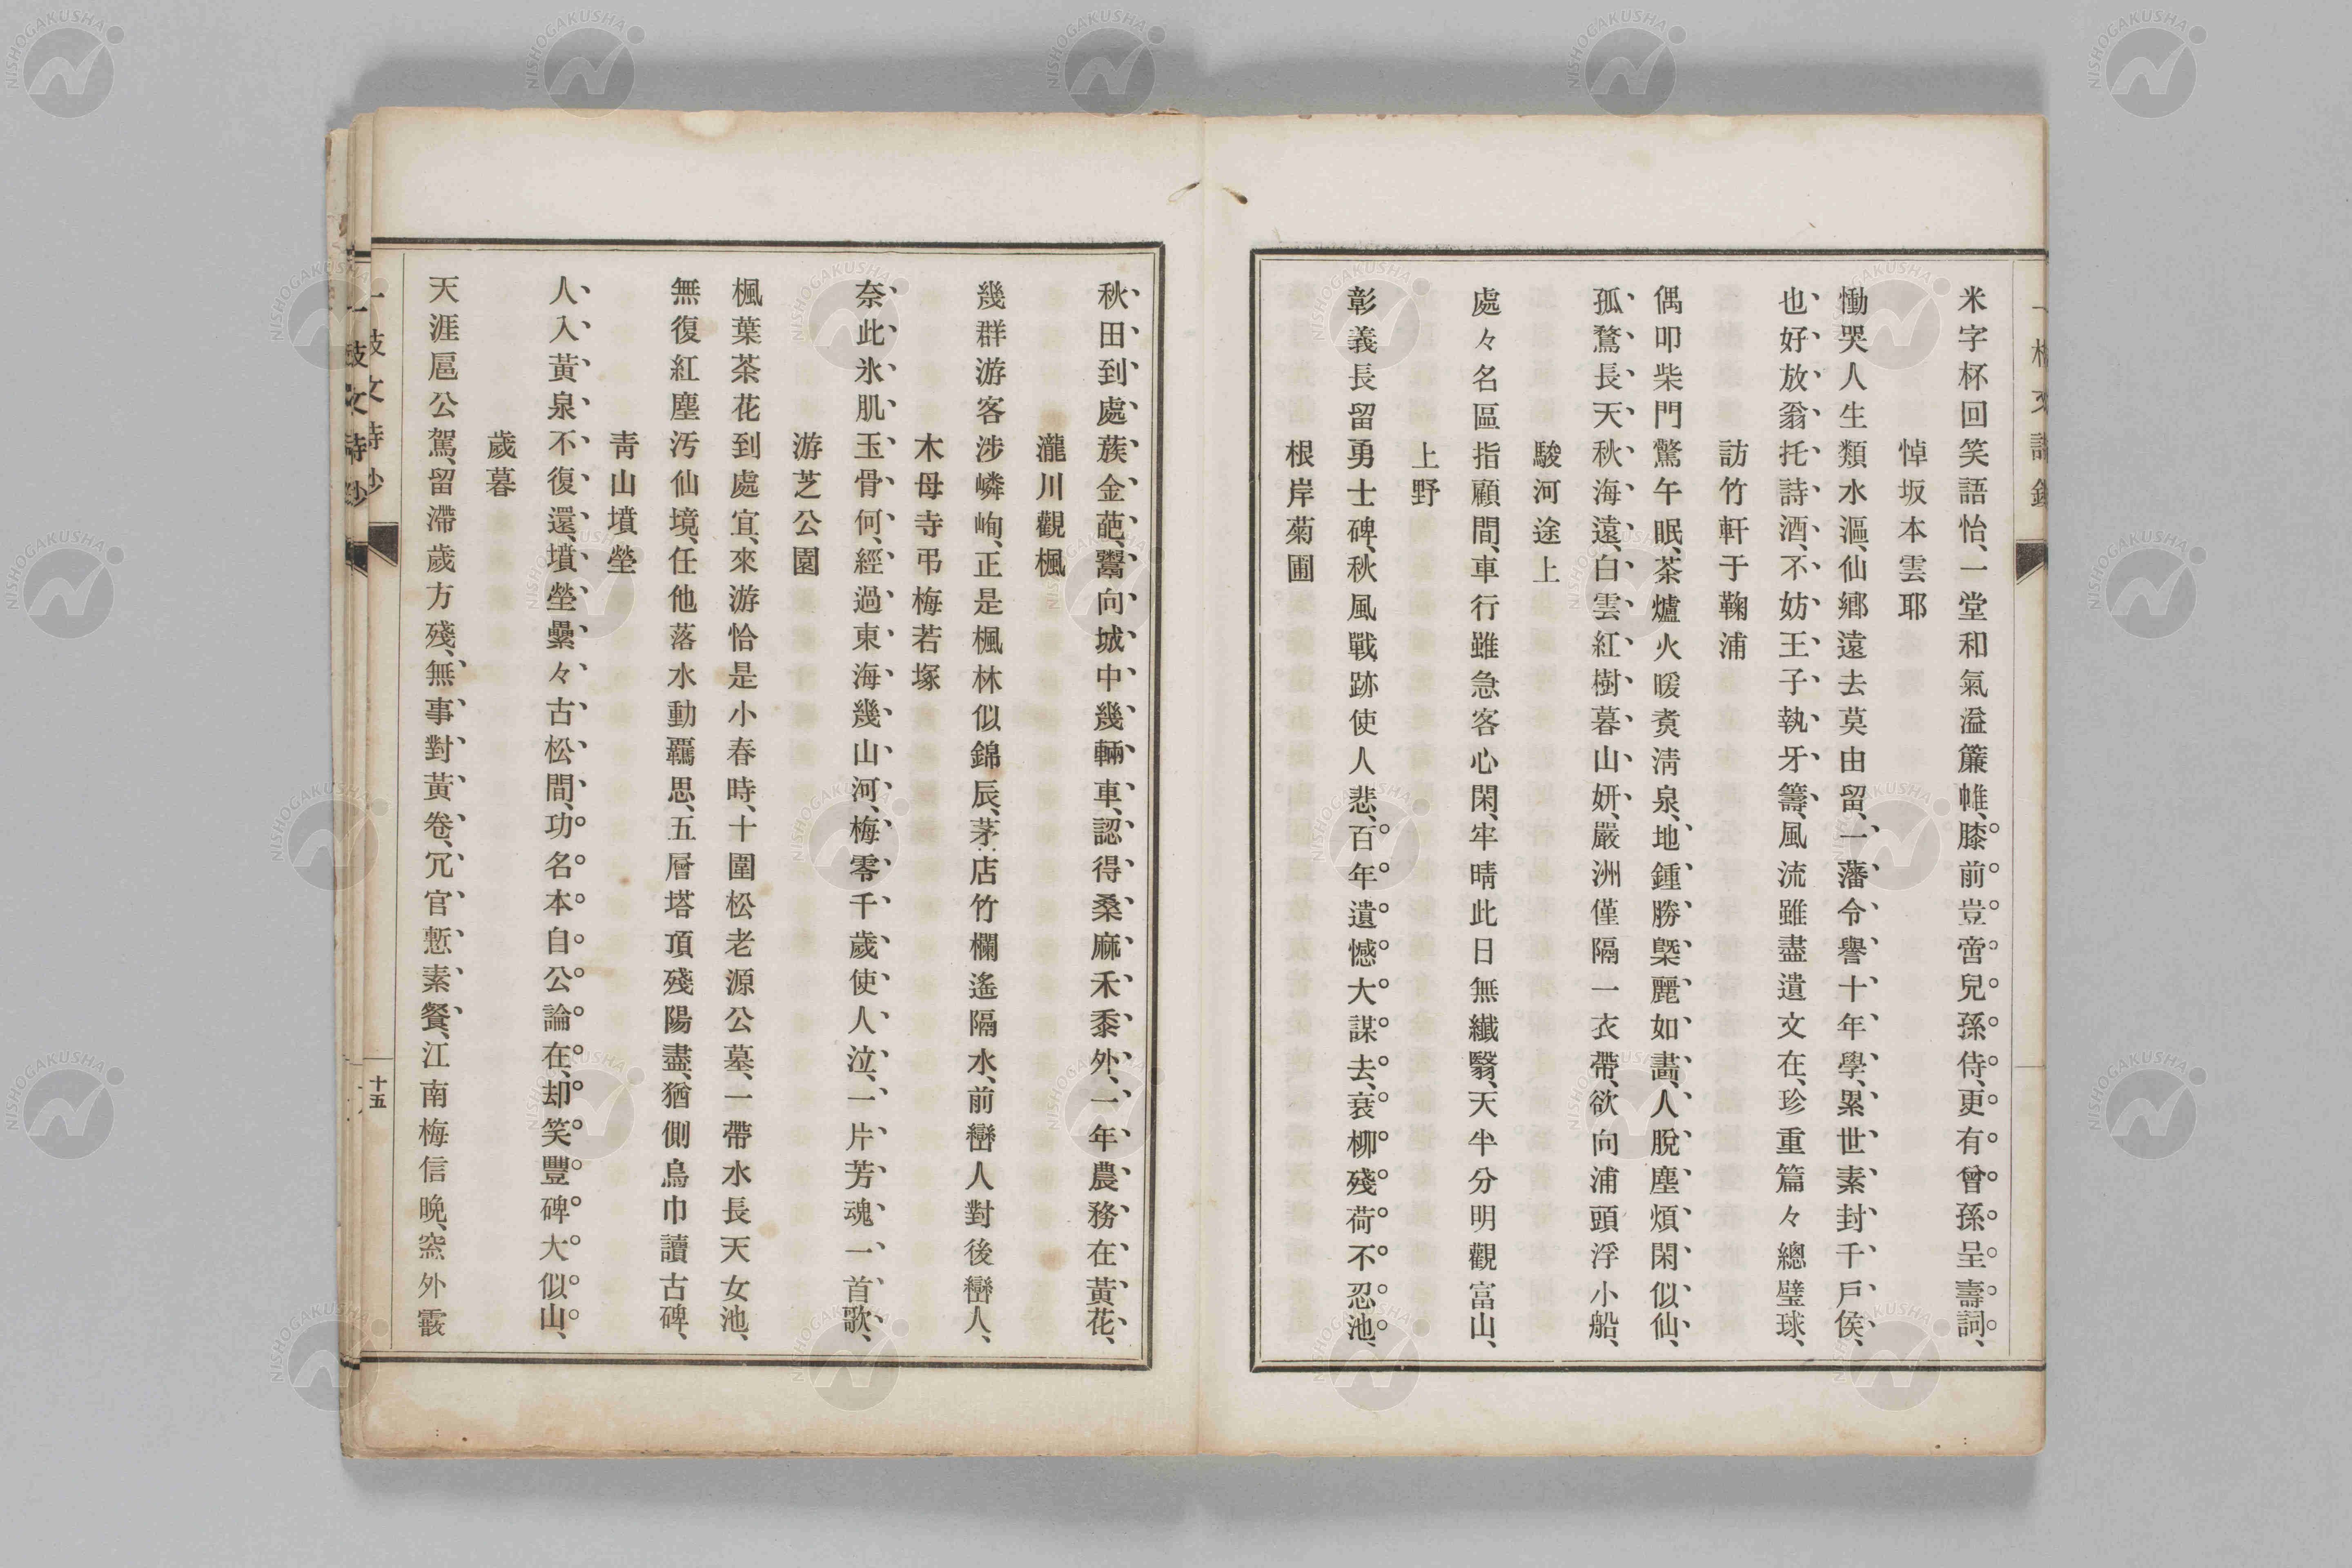 米字杯回笑語怡、一堂和氣溢簾帷、膝前豈啻兒孫侍、更有曾孫呈壽詞、
悼坂本雲耶
慟哭人生類水漚、仙鄉遠去莫由留、一藩令譽十年學、累世素封千戶侯、
也好放翁托詩酒、不妨王子執牙籌、風流雖盡遺文在、珍重篇々總璧球、
訪竹軒于鞠浦
偶叩柴門驚午眠、茶爐火暖煑淸泉、地鍾勝槩麗如畵、人脫塵煩閑似仙、
孤鶩長天秋海遠、白雲紅樹暮山妍、嚴洲僅隔一衣帶、欲向浦頭浮小船、
駿河途上
處々名區指顧間、車行雖急客心閑、牢晴此日無纖翳、天半分明觀富山、
上野
彰義長留勇士碑、秋風戰跡使人悲、百年遺憾大謀去、衰柳殘荷不忍池、
根岸菊圃
秋田到處蔟金葩、鬻向城中幾輛車、認得桑麻禾黍外、一年農務在黃花、
瀧川觀楓
幾群游客涉嶙峋、正是楓林似錦辰、茅店竹欄遙隔水、前巒人對後巒人、
木母寺弔梅若塚
奈此氷肌玉骨何、經過東海幾山河、梅零千歲使人泣、一片芳魂一首歌、
游芝公園
楓葉茶花到處宜、來游恰是小春時、十圍松老源公墓、一帶水長天女池、
無復紅塵汚仙境、任他落水動羈思、五層塔頂殘陽盡、猶側烏巾讀古碑、
靑山墳塋
人入黃泉不復還、墳塋纍々古松間、功名本自公論在、却笑豐碑大似山、
歲暮
天涯扈公駕、留滯歲方殘、無事對黃卷、冗官慙素餐、江南梅信晚、窓外霰
一枝文詩鈔
十五